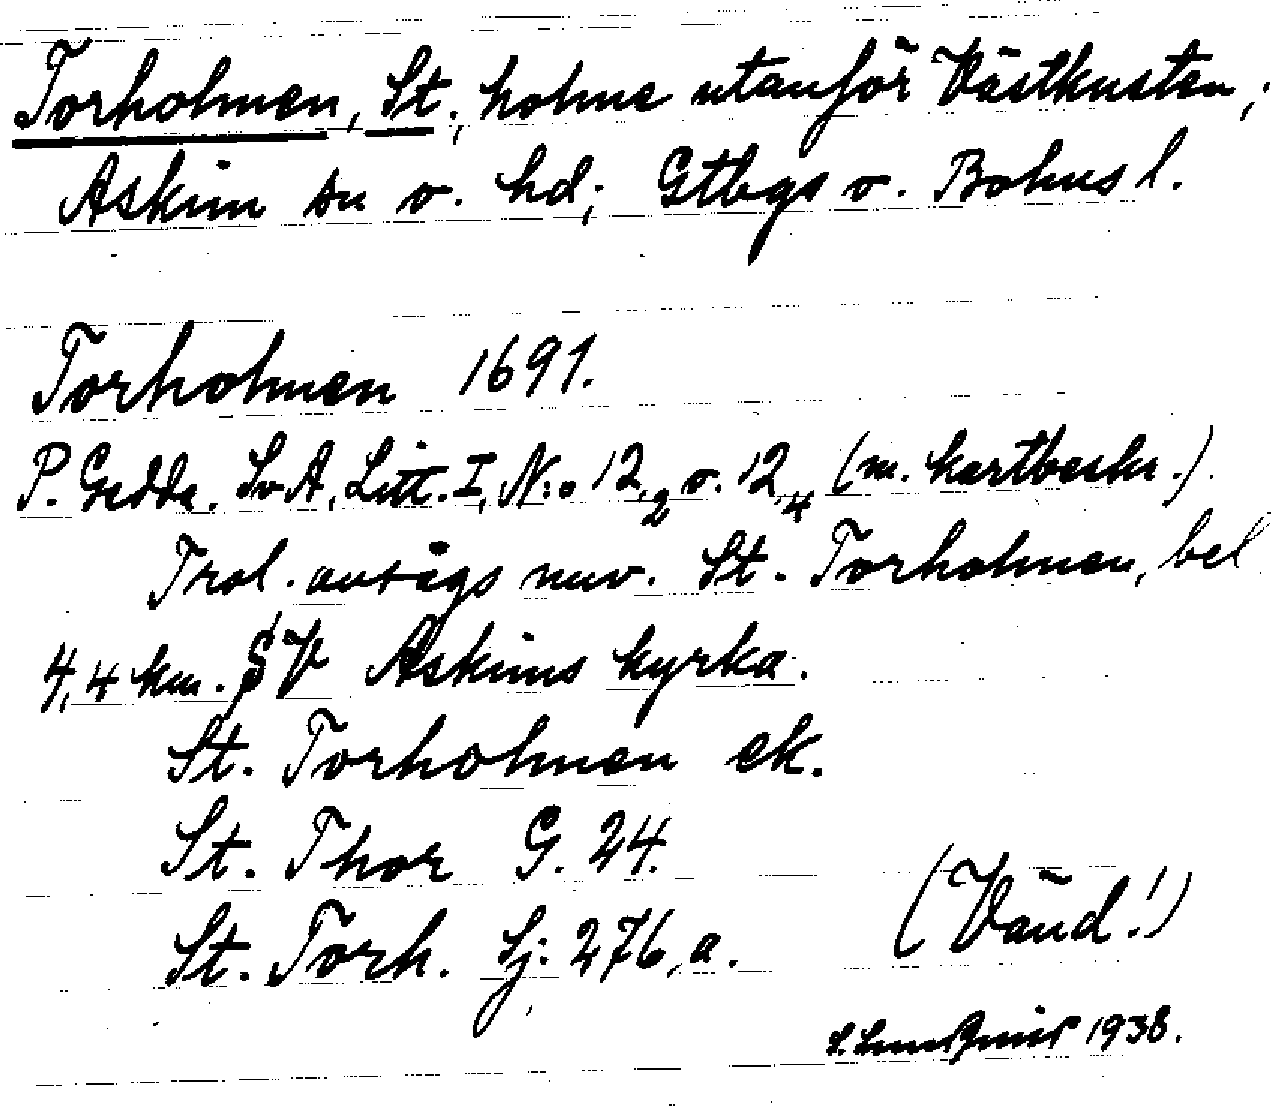 Torholmen, St., holme utanför Västkusten,
Askim sn o. hd; Gtbgs o. Bohus l.
Torholmen 1691.
P. Gedda. SvA, Litt. I, N:o 12,2 o. 12,4 (m. kartbeskr.).
Trol. avsägs nuv. St. Torholmen, bel
4,4 km. SV Askims kyrka.
St. Torholmen ek.
St. Thor G. 24.
St. Torh. Sj: 276,a.
(Vänd!)
1938.